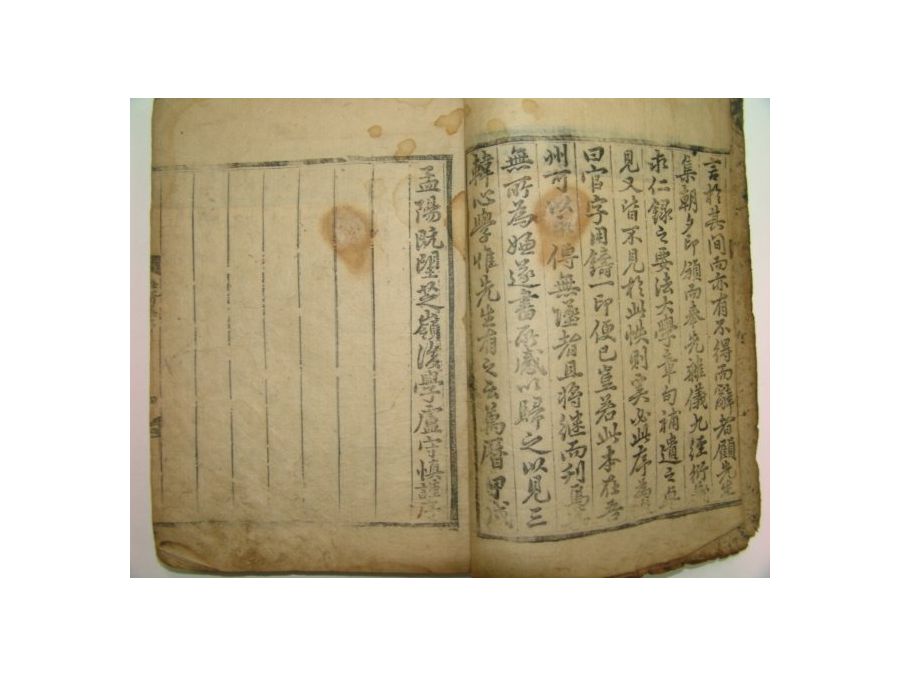 言於其間而亦有不得而辭者顧先生
集朝夕印頒而奉先雜儀九經衍義
求仁錄之要法大學章句補遺之
見又皆不見於此帙則奚必此序為
曰官字用鑄一印便已豈若此本在吾
州可以印傳無塗者且將継而刊焉
無所為嫌遂書所感以歸之以見三
韓心學惟先生有之云萬曆甲戌
孟陽既望芝嶺後學盧守愼謹序